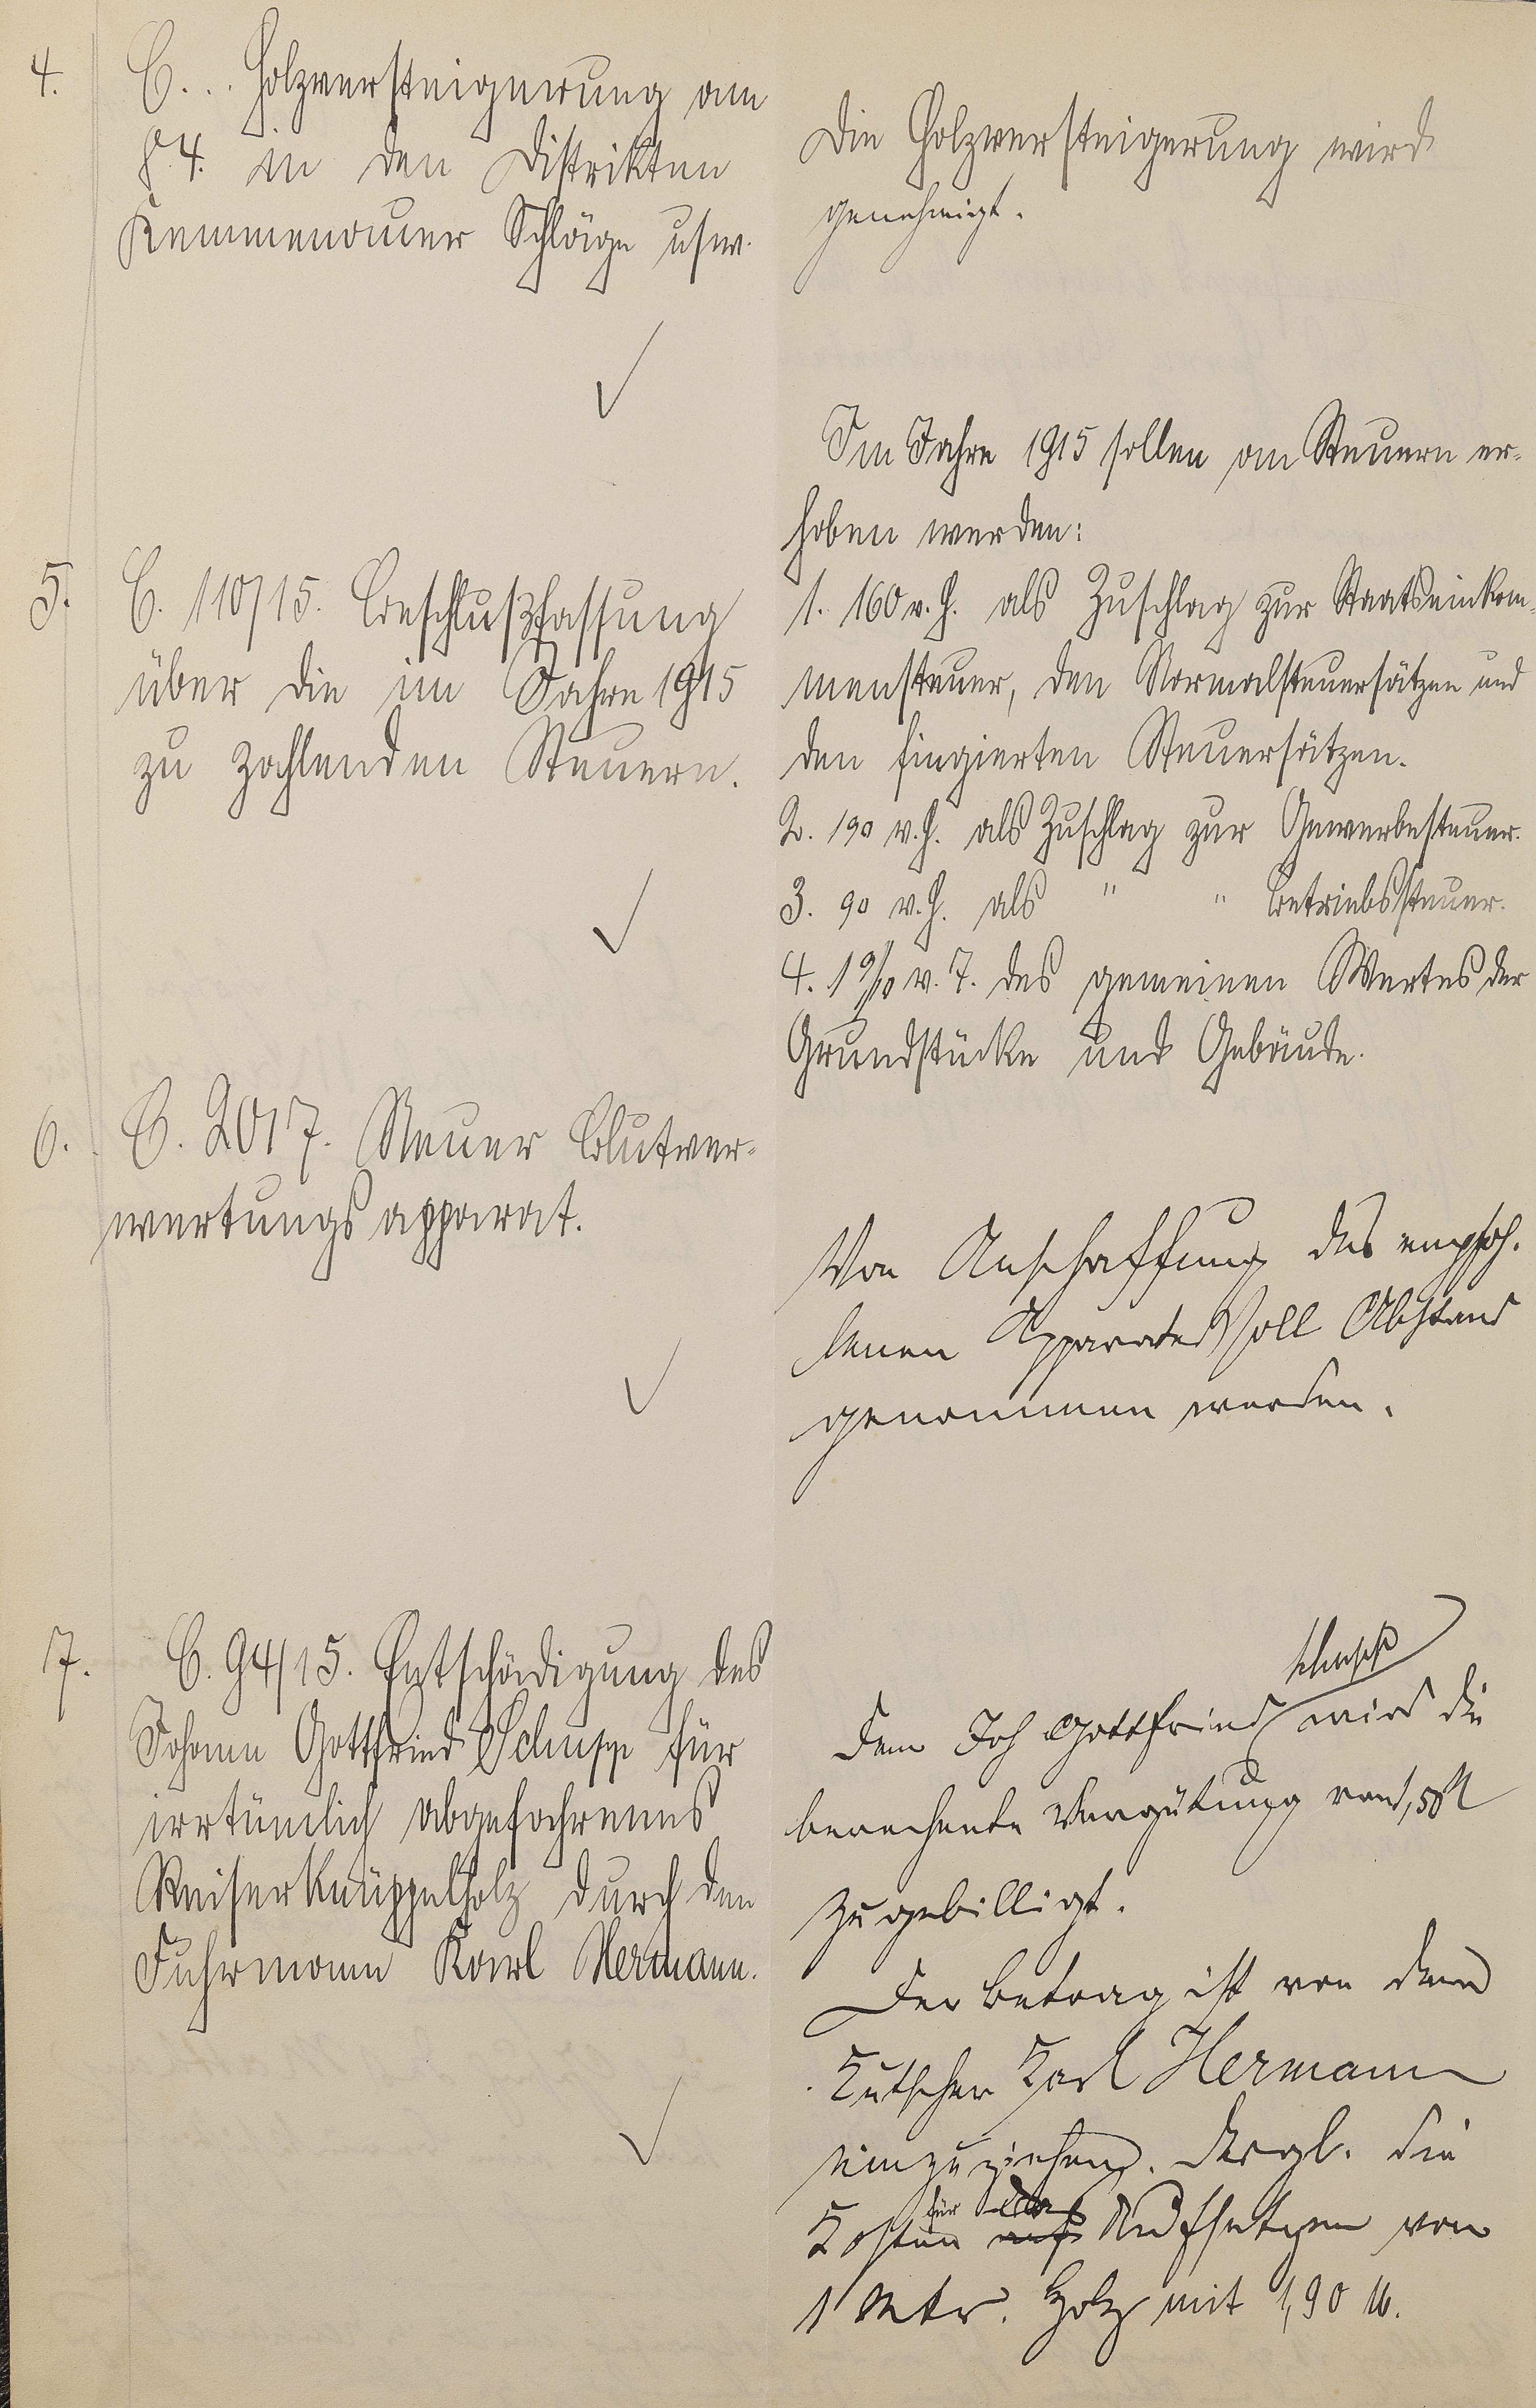 4. C... Holzversteigerung am
8.4. in den Distrikten
Kemmenauer Schläge usw.
Die Holzversteigerung wird
genehmigt.
5. C. 110/15. Beschlußfassung
über die im Jahre 1915
zu zahlenden Steuern.
Im Jahre 1915 sollen an Steuern er-
hoben werden:
1. 160 v. H. als Zuschlag zur Staatseinkom-
mensteuer, den Normalsteuersätzen und
den fingierten Steuersätzen.
2. 190 v. H. als Zuschlag zur Gewerbesteuer.
3. 90 v. H. als " " Betriebssteuer.
4. 1 9/10 v. T. des gemeinen Wertes der
Grundstücke und Gebäude.
6. C. 2017. Neuer Blutver-
wertungsapparat.
Von Anschaffung des empfoh-
lenen Apparates soll Abstand
genommen werden.
7. C. 94/15. Entschädigung des
Johann Gottfried Schupp für
irrtümlich abgefahrenes
Reiserknüppelholz durch den
Fuhrmann Karl Hermann.
Schupp
Dem Joh Gottfried wird die
berechnete Vergütung von 1,50 M
zugebilligt.
Der Betrag ist von dem
Kutscher Karl Hermann
einzuziehen. Dergl. die
für das
Kosten Aufsetzen von
1 Mtr. Holz mit 1,90 M.